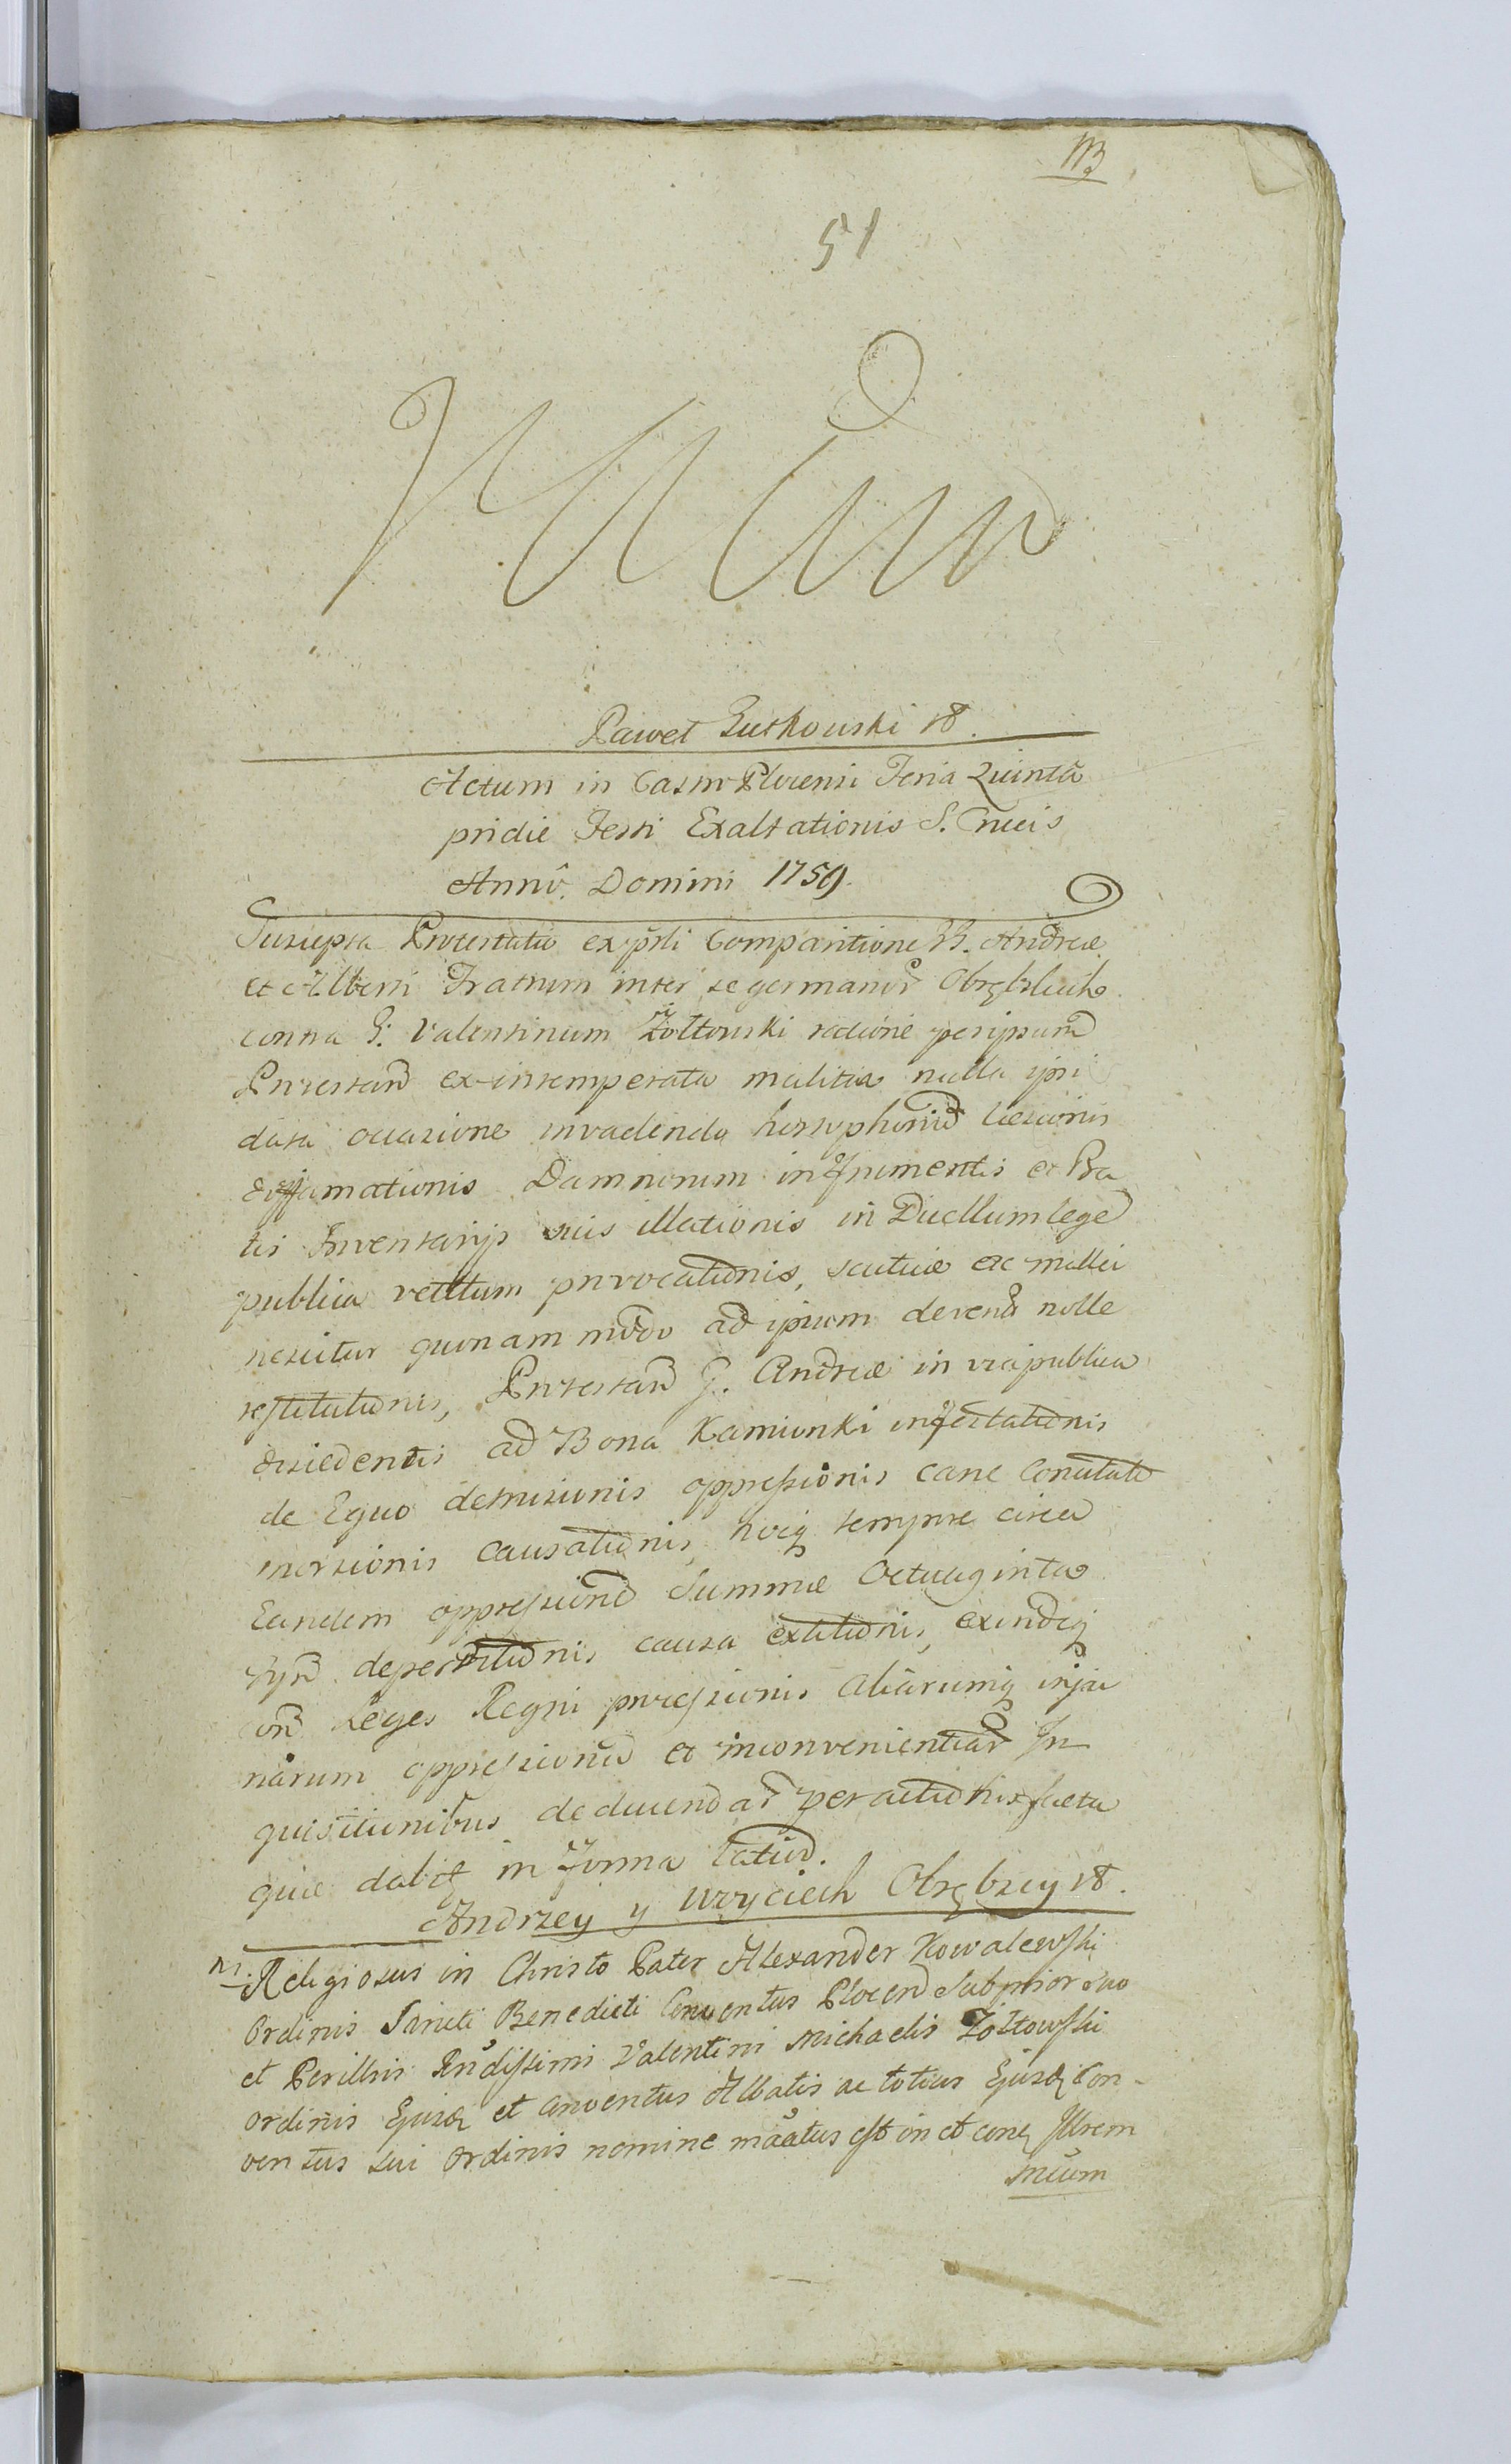 51
Paweł Rutkowski
Actum in Castro Plocensi Feria Quinta
pridie Festi Exaltationis S. Crucis
Anno Domini 1759.
Suscepta Protestatio ex psti Comparitione Andreæ
et Alberti Fratrum inter se germanor Obrębskich
contra G. Valentinum Żółtowski ratione per ipsum
Protestan ex intemperata malitia nulla ipsi
data occasione invadendo læsionis
diffamationis Damnorum in Frumentis et Pra
tis Inventarijs suis illationis in Duellum lege
publica vetitum provocationis, scuticæ
nescitur quonam modo ad ipsum deven nolle
restitutionis, Protestan G. Andreæ in via publica
discedentis ad Bona Kamionki infestationis
de Equo detrusionis oppressionis cane
morsionis causationis, hocq tempore circa
Eandem oppression Summæ Octuaginta
deperditionis causa extitionis, exindeq
con Leges Regni processionis aliarumq inju
riarum oppression et inconvenientiar In
quisitionibus deducendar peractionis facta
quie dabit in forma latiori.
Andrzey y Woyciech Obrębscy
Religiosus in Christo Pater Alexander Kowalewski
Ordinis Sancti Benedicti Conventus Plocen Subprior suo
et Perillris Rndissimi Valentini Michaelis Żółtowski
ordinis Ejusd et Conventus Abbatis ac totius Ejusd Con-
ventus sui Ordinis nomine est in et con Illrem